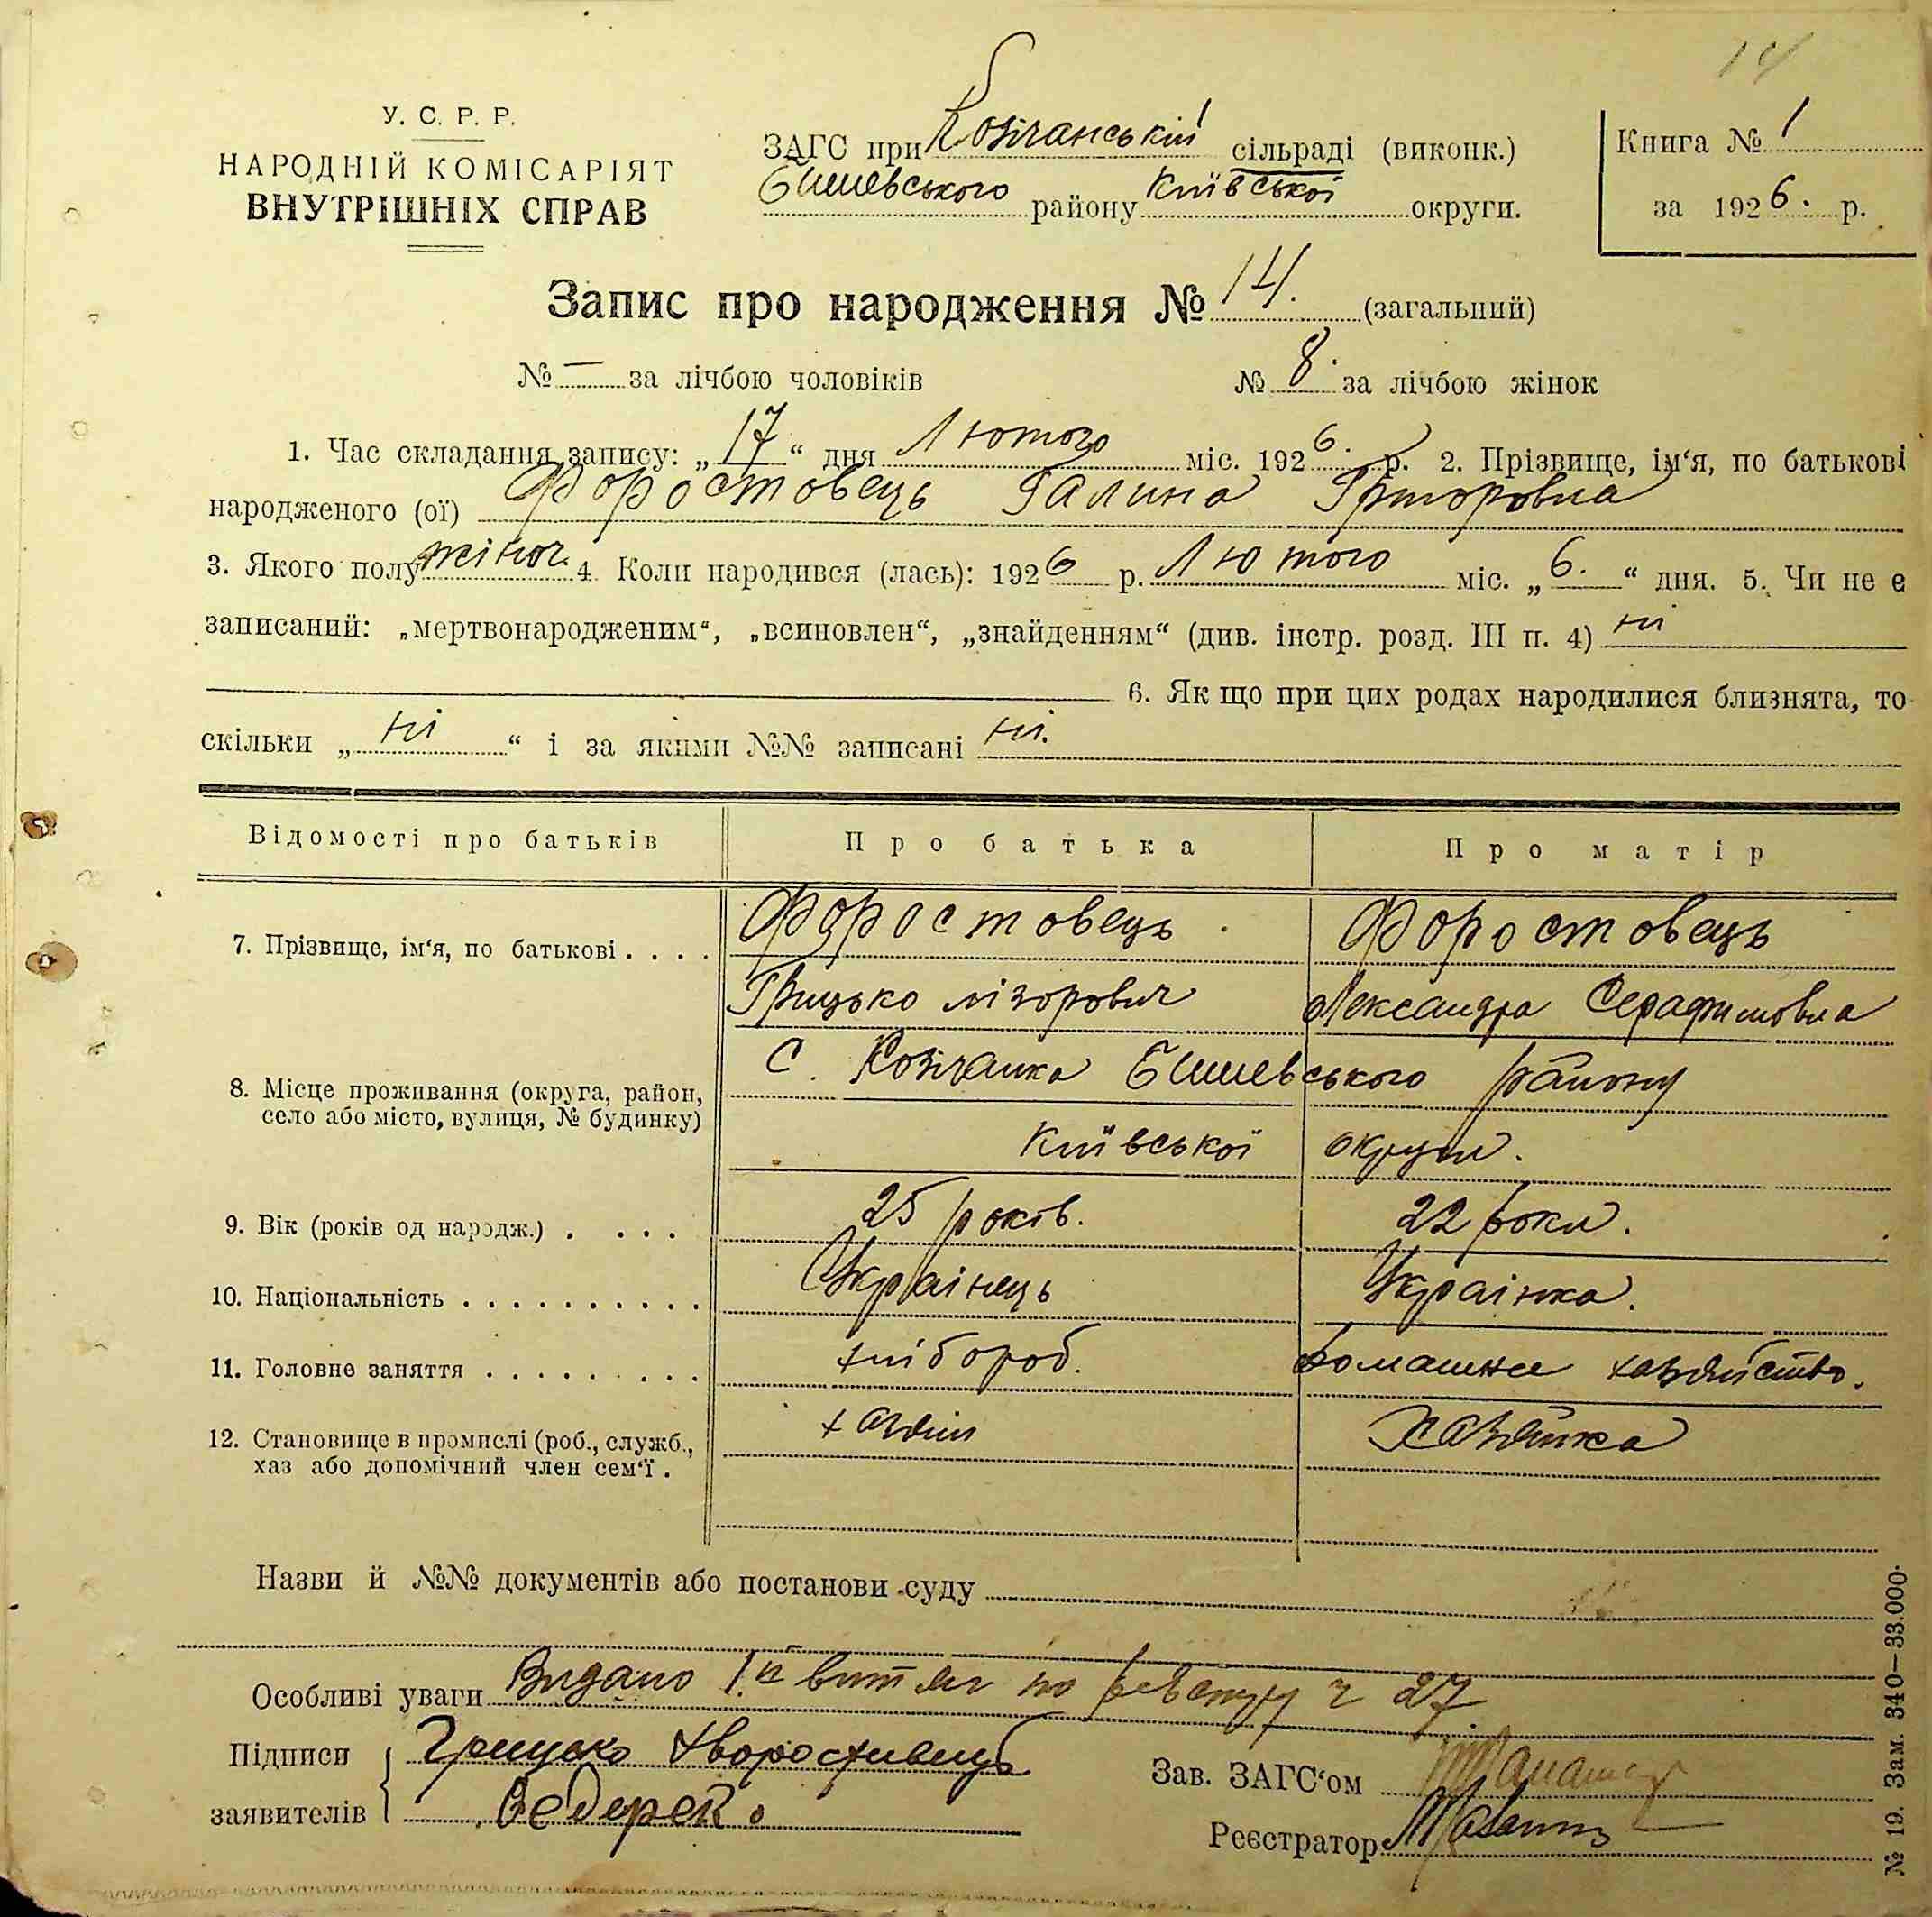 14
У. С. Р. Р.
НАРОДНІЙ КОМІСАРІЯТ
ВНУТРІШНІХ СПРАВ
ЗАГС при Козічанській сільраді (виконк.)
Бишевського району Київської округи.
Книга № 1
за 1926. р.
Запис про народження № 14. (загальний)
№ — за лічбою чоловіків № 8. за лічбою жінок
1. Час складання запису: „17“ дня Лютого міс. 1926. р. 2. Прізвище, ім‘я, по батькові
народженого (ої) Форостовець Галина Григоровна
3. Якого полу жіноч. 4. Коли народився (лась): 1926 р. Лютого міс. „6.“ дня. 5. Чи не є
записаний: „мертвонародженим“, „всиновлен“, „знайденням“ (див. інстр. розд. III п. 4) ні
6. Як що при цих родах народилися близнята, то
скільки „ні“ і за якими №№ записані ні.
Відомості про батьків Про батька Про матір
7. Прізвище, ім‘я, по батькові . . . . Форостовець Форостовець
Грицько Александра Серафимовна
8. Місце проживання (округа, район, С. Козічанка Бишевського району
село або місто, вулиця, № будинку)
Київської округи.
9. Вік (років од народж.) . . . . 25 років. 22 роки.
10. Національність . . . . . . . . . . Українець Українка.
11. Головне заняття . . . . . . . . . хлібороб. Домашнее хазяйство.
12. Становище в промислі (роб., служб., хазяїн Хазяйка
хаз або допомічний член сем‘ї .
Назви й №№ документів або постанови суду
Особливі уваги Видано 1. витяг по ревстру ч 27
Підписи Грицько Хворостивець
заявителів
Зав. ЗАГС‘ом
Реєстратор
№ 19. Зам. 340—33.000.